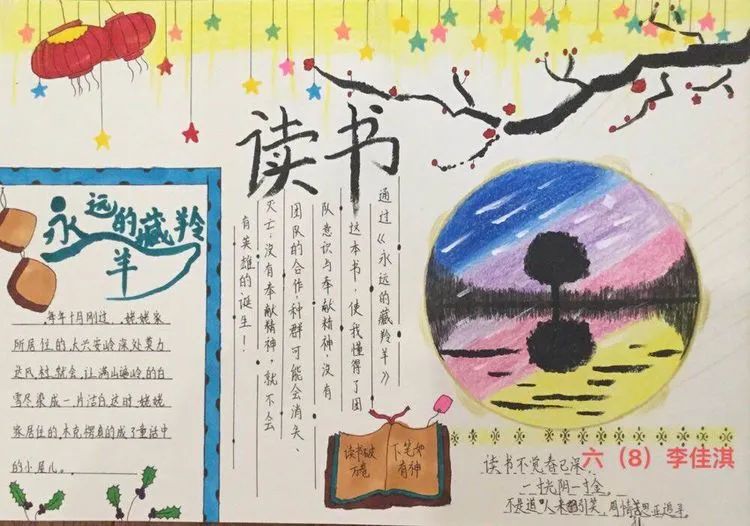 读书
永远的藏羚
羊
每年十月刚过，姥姥家
所居住的大兴安岭深处莫力
达瓦村，就会让满山遍岭的白
雪尽染成一片洁白，这时姥姥
家居住的木克楞真的成了童话中
的小屋儿。
通过《永远的藏羚羊》
这本书，使我懂得了团
队意识与奉献精神，没有
团队的合作，种群可能会消失、
灭亡；没有奉献精神，就不会
有英雄的诞生！
读书破
万卷
下笔如
有神
六（8）李佳淇
读书不觉春已深，
一寸光阴一寸金。
不是道人来引笑，周情孔思正追寻。